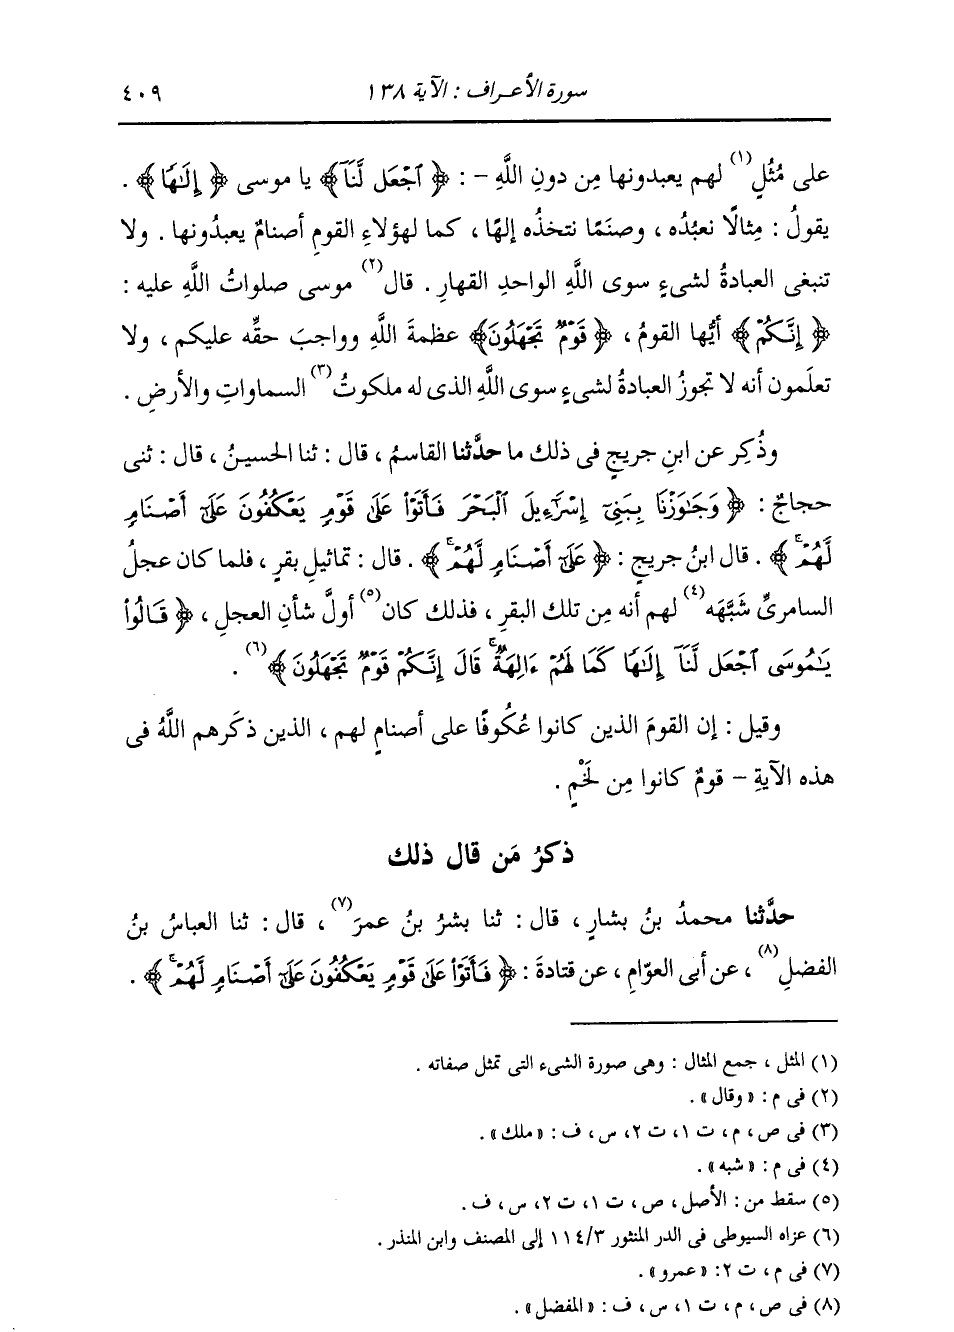 سورة الأعراف : الآية ١٣٨
٤٠٩
على مُثُلٍ(١) لهم يعبدونها مِن دونِ اللَّهِ - : ﴿ ٱجْعَل لَّنَآ ﴾ يا موسى ﴿ إِلَٰهًا ﴾ .
يقولُ : مِثالًا نعبُدُه ، وصنَمًا نتخذُه إلهًا ، كما لهؤلاءِ القومِ أصنامٌ يعبدُونها . ولا
تنبغى العبادةُ لشىءٍ سوى اللَّهِ الواحدِ القهارِ . قال(٢) موسى صلواتُ اللَّهِ عليه :
﴿ إِنَّكُمْ ﴾ أيُّها القومُ ، ﴿ قَوْمٌ تَجْهَلُونَ ﴾ عظمةَ اللَّهِ وواجبَ حقِّه عليكم ، ولا
تعلَمون أنه لا تجوزُ العبادةُ لشىءٍ سوى اللَّهِ الذى له ملكوتُ(٣) السماواتِ والأرضِ .
وذُكِر عن ابنِ جريجٍ فى ذلك ما حدَّثنا القاسمُ ، قال : ثنا الحسينُ ، قال : ثنى
حجاجٌ : ﴿ وَجَٰوَزْنَا بِبَنِىٓ إِسْرَٰٓءِيلَ ٱلْبَحْرَ فَأَتَوْا۟ عَلَىٰ قَوْمٍ يَعْكُفُونَ عَلَىٰٓ أَصْنَامٍ
لَّهُمْ ۚ ﴾ . قال ابنُ جريجٍ : ﴿ عَلَىٰٓ أَصْنَامٍ لَّهُمْ ۚ ﴾ . قال : تماثيلِ بقرٍ ، فلما كان عجلُ
السامرىِّ شَبَّهَه(٤) لهم أنه مِن تلك البقرِ ، فذلك كان(٥) أولَّ شأنِ العجلِ ، ﴿ قَالُوا۟
يَٰمُوسَى ٱجْعَل لَّنَآ إِلَٰهًا كَمَا لَهُمْ ءَالِهَةٌ ۚ قَالَ إِنَّكُمْ قَوْمٌ تَجْهَلُونَ ﴾(٦) .
وقيل : إن القومَ الذين كانوا عُكُوفًا على أصنامٍ لهم ، الذين ذكَرهم اللَّهُ فى
هذه الآيةِ - قومٌ كانوا مِن لَخْمٍ .
ذكرُ مَن قال ذلك
حدَّثنا محمدُ بنُ بشارٍ ، قال : ثنا بشرُ بنُ عمرَ(٧) ، قال : ثنا العباسُ بنُ
الفضلِ(٨) ، عن أبى العوّامِ ، عن قتادةَ : ﴿ فَأَتَوْا۟ عَلَىٰ قَوْمٍ يَعْكُفُونَ عَلَىٰٓ أَصْنَامٍ لَّهُمْ ۚ ﴾ .
(١) المثل ، جمع المثال : وهى صورة الشىء التى تمثل صفاته .
(٢) فى م : « وقال » .
(٣) فى ص ، م ، ت ١ ، ت ٢ ، س ، ف : « ملك » .
(٤) فى م : « شبه » .
(٥) سقط من : الأصل ، ص ، ت ١ ، ت ٢ ، س ، ف .
(٦) عزاه السيوطى فى الدر المنثور ١١٤/٣ إلى المصنف وابن المنذر .
(٧) فى م ، ت ٢ : « عمرو » .
(٨) فى ص ، م ، ت ١ ، س ، ف : « المفضل » .